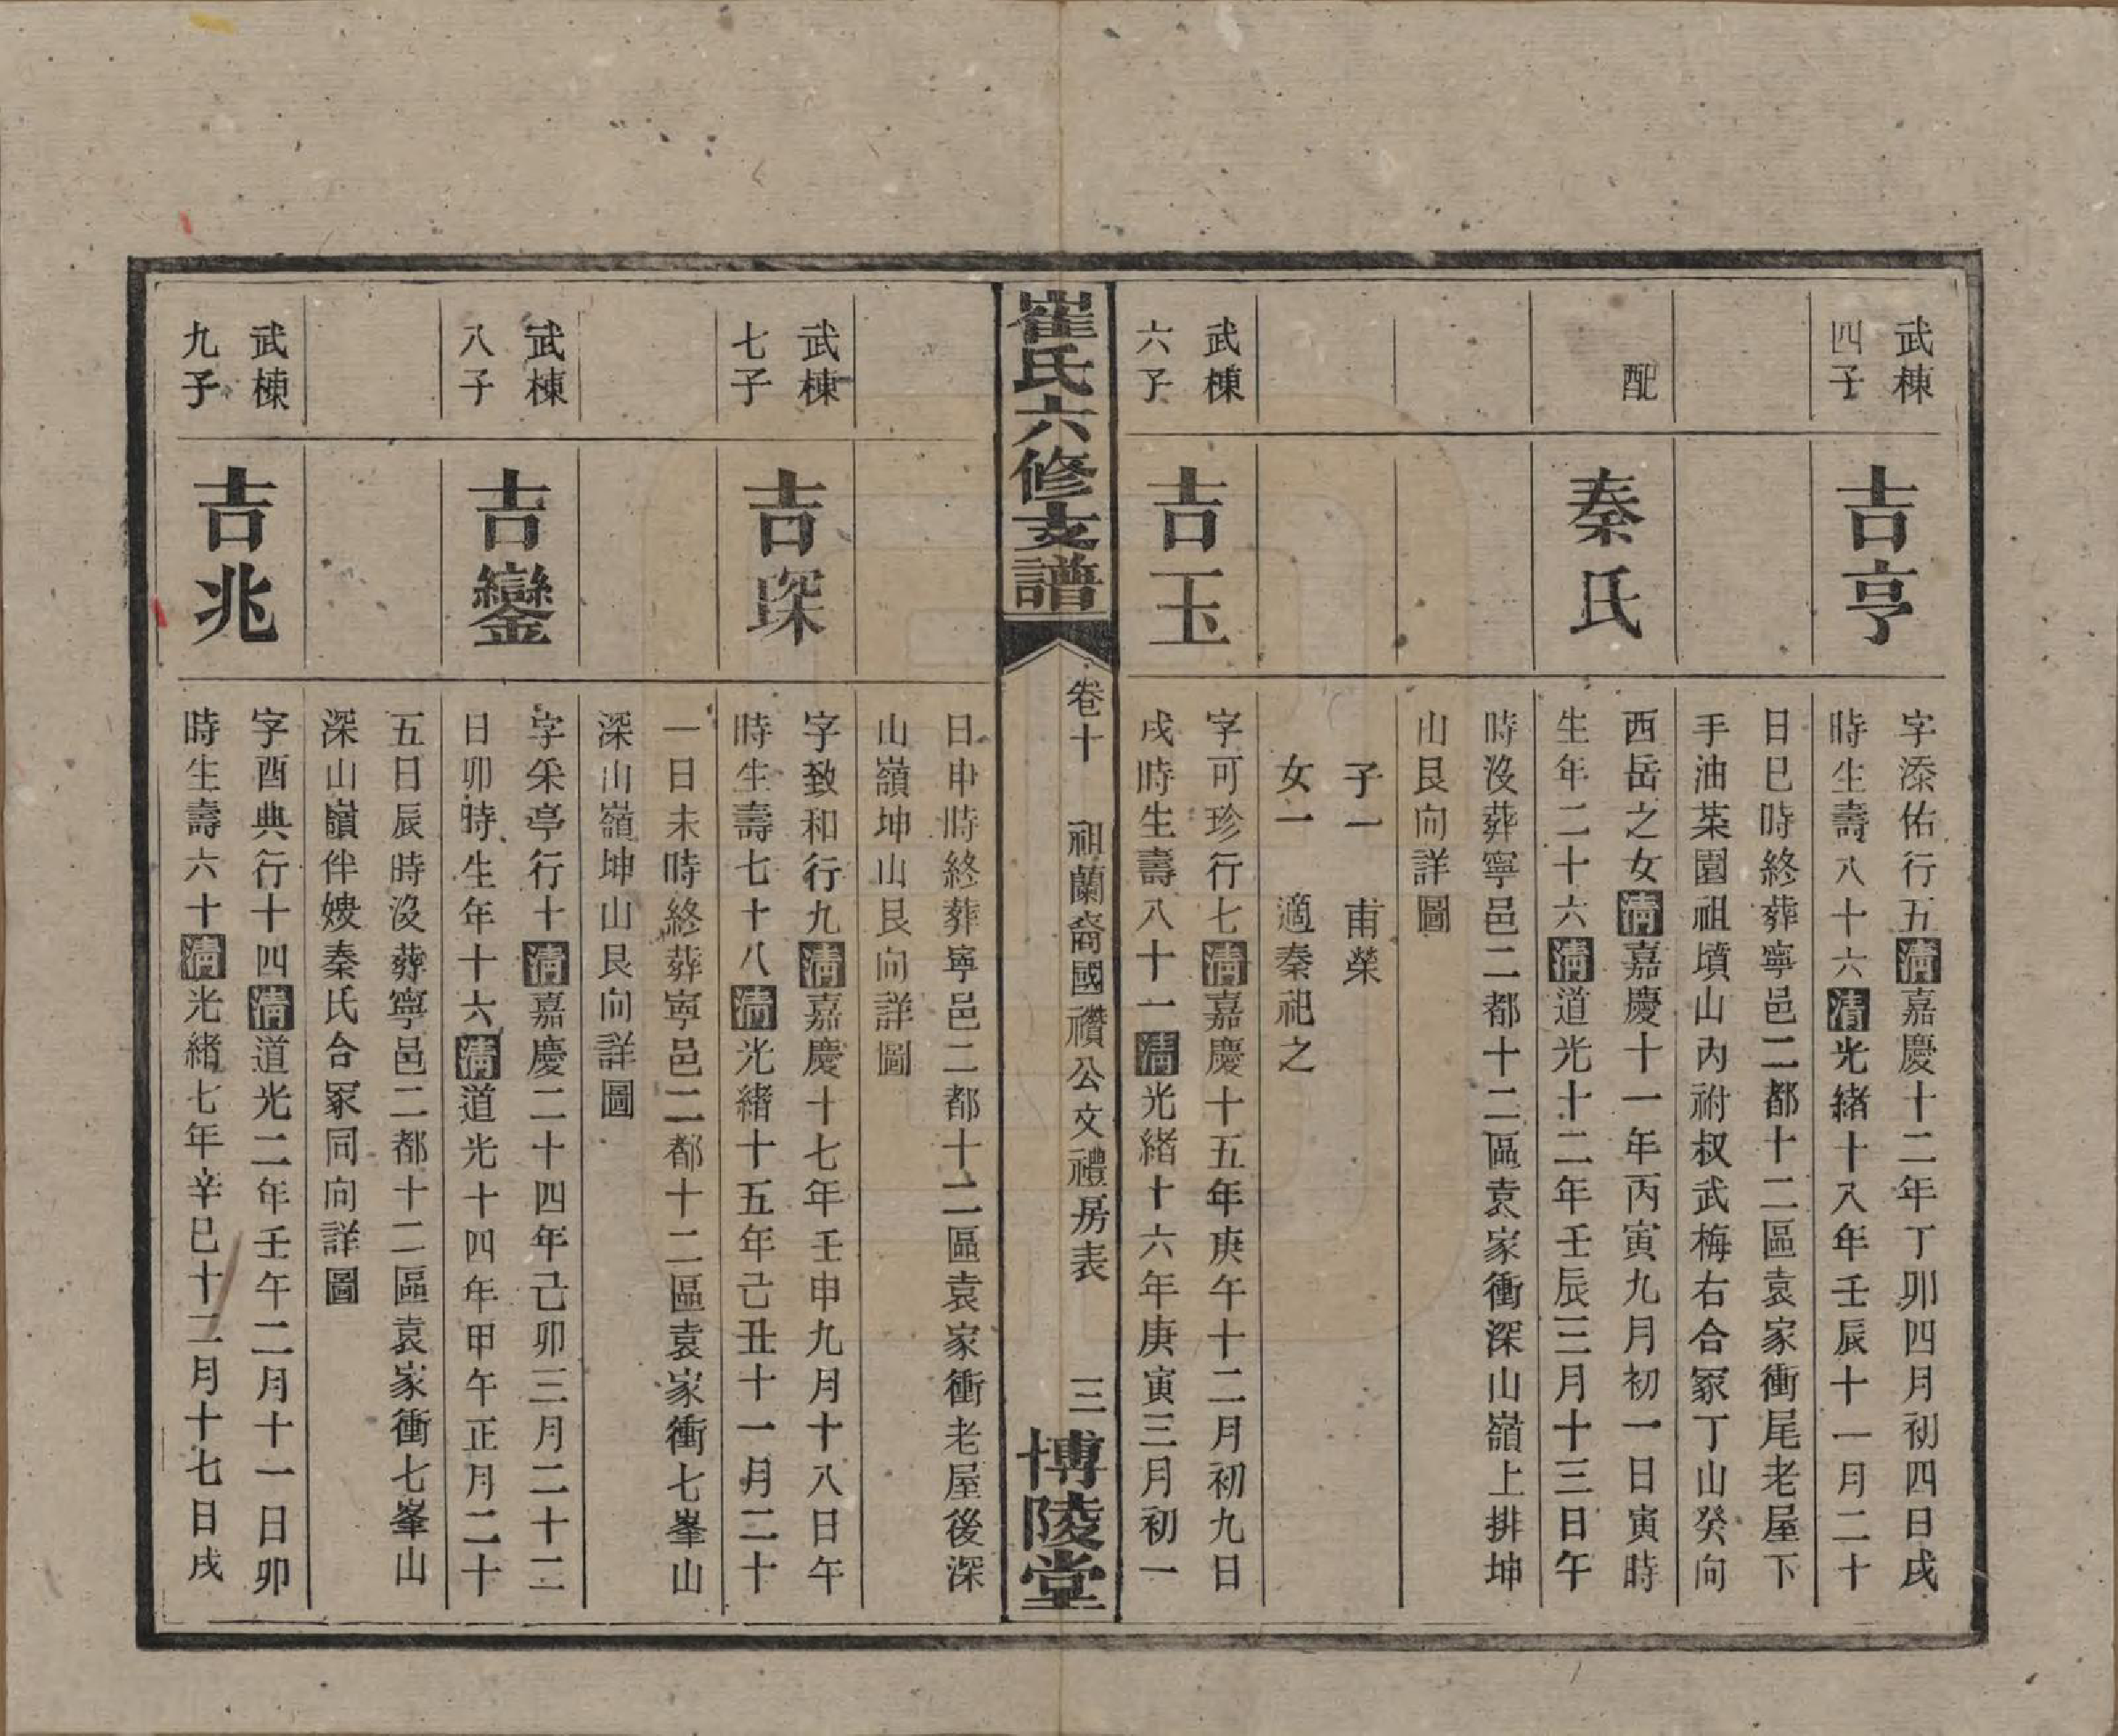 武棟
四子
吉亨
字添佑行五清嘉慶十二年丁卯四月初四日戌
時生壽八十六清光緒十八年壬辰十一月二十
日巳時終葬寧邑二都十二區袁家衝尾老屋下
手油茶園祖墳山內祔叔武梅右合冢丁山癸向
配
秦氏
西岳之女清嘉慶十一年丙寅九月初一日寅時
生年二十六清道光十二年壬辰三月十三日午
時沒葬寧邑二都十二區袁家衝深山嶺上排坤
山艮向詳圖
子一 甫榮
女一 適秦祀之
武棟
六子
吉玉
字可珍行七清嘉慶十五年庚午十二月初九日
戌時生壽八十一清光緒十六年庚寅三月初一
崔氏六修支譜
卷十 祖蘭裔國禶公文禮房表 三
博陵堂
日申時終葬寧邑二都十二區袁家衝老屋後深
山嶺坤山艮向詳圖
武棟
七子
吉琛
字致和行九清嘉慶十七年壬申九月十八日午
時生壽七十八清光緒十五年己丑十一月二十
一日未時終葬寧邑二都十二區袁家衝七峯山
深山嶺坤山艮向詳圖
武棟
八子
吉鑾
字采亭行十清嘉慶二十四年己卯三月二十二
日卯時生年十六清道光十四年甲午正月二十
五日辰時沒葬寧邑二都十二區袁家衝七峯山
深山嶺伴嫂秦氏合冢同向詳圖
武棟
九子
吉兆
字酉典行十四清道光二年壬午二月十一日卯
時生壽六十清光緒七年辛巳十二月十七日戌